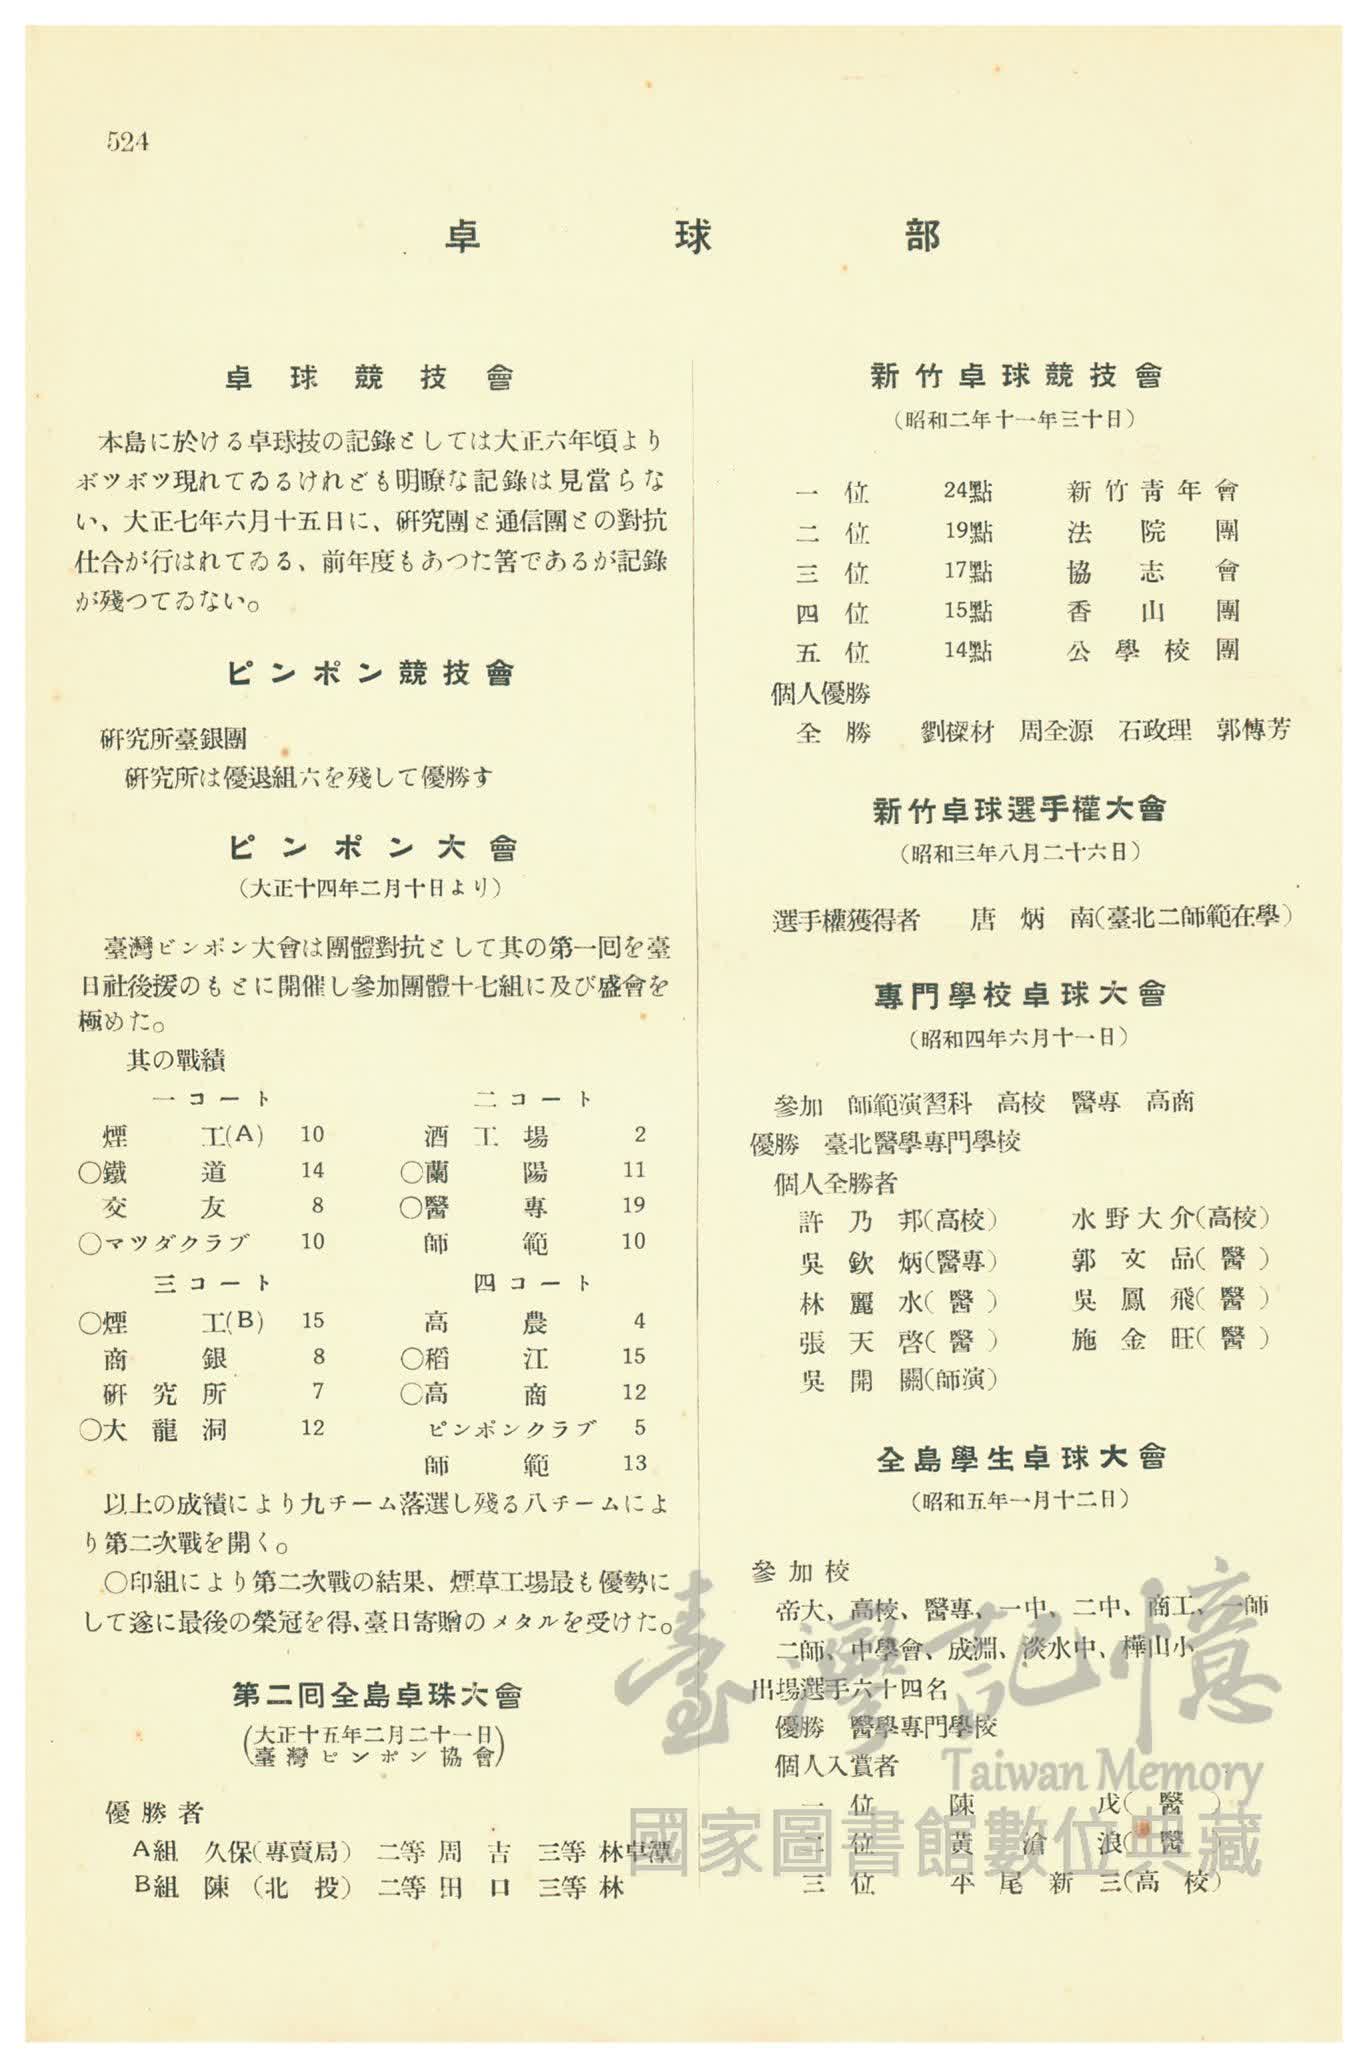 524
卓球部
卓球競技會
本島に於ける卓球技の記錄としては大正六年頃より
ボツボツ現れてゐるけれども明瞭な記錄は見當らな
い、大正七年六月十五日に、硏究團と通信團との對抗
仕合が行はれてゐる、前年度もあつた筈であるが記錄
が殘つてゐない。
ピンポン競技會
硏究所臺銀團
硏究所は優退組六を殘して優勝す
ピンポン大會
（大正十四年二月十日より）
臺灣ピンポン大會は團體對抗として其の第一囘を臺
日社後援のもとに開催し參加團體十七組に及び盛會を
極めた。
其の戰績
一コート　二コート
煙工(A) 10　酒工場 2
○鐵道 14　○蘭陽 11
交友 8　○醫專 19
○マツダクラブ 10　師範 10
三コート　四コート
○煙工(B) 15　高農 4
商銀 8　○稻江 15
硏究所 7　○高商 12
○大龍洞 12　ピンポンクラブ 5
師範 13
以上の成績により九チーム落選し殘る八チームによ
り第二次戰を開く。
○印組により第二次戰の結果、煙草工場最も優勢に
して遂に最後の榮冠を得、臺日寄贈のメタルを受けた。
第二囘全島卓珠大會
（大正十五年二月二十一日
臺灣ピンポン協會）
優勝者
A組 久保(專賣局) 二等 周吉 三等 林卓潭
B組 陳(北投) 二等 田口 三等 林
新竹卓球競技會
（昭和二年十一年三十日）
一位 24點 新竹靑年會
二位 19點 法院團
三位 17點 協志會
四位 15點 香山團
五位 14點 公學校團
個人優勝
全勝 劉樑材 周全源 石政理 郭傳芳
新竹卓球選手權大會
（昭和三年八月二十六日）
選手權獲得者 唐炳南(臺北二師範在學)
專門學校卓球大會
（昭和四年六月十一日）
參加 師範演習科 高校 醫專 高商
優勝 臺北醫學專門學校
個人全勝者
許乃邦(高校) 水野大介(高校)
吳欽炳(醫專) 郭文品(醫)
林麗水(醫) 吳鳳飛(醫)
張天啓(醫) 施金旺(醫)
吳開關(師演)
全島學生卓球大會
（昭和五年一月十二日）
參加校
帝大、高校、醫專、一中、二中、商工、一師
二師、中學會、成淵、淡水中、樺山小
出場選手六十四名
優勝 醫學專門學校
個人入賞者
一位 陳戊(醫)
二位 黃滄浪(醫)
三位 平尾新三(高校)
臺灣記憶
Taiwan Memory
國家圖書館數位典藏